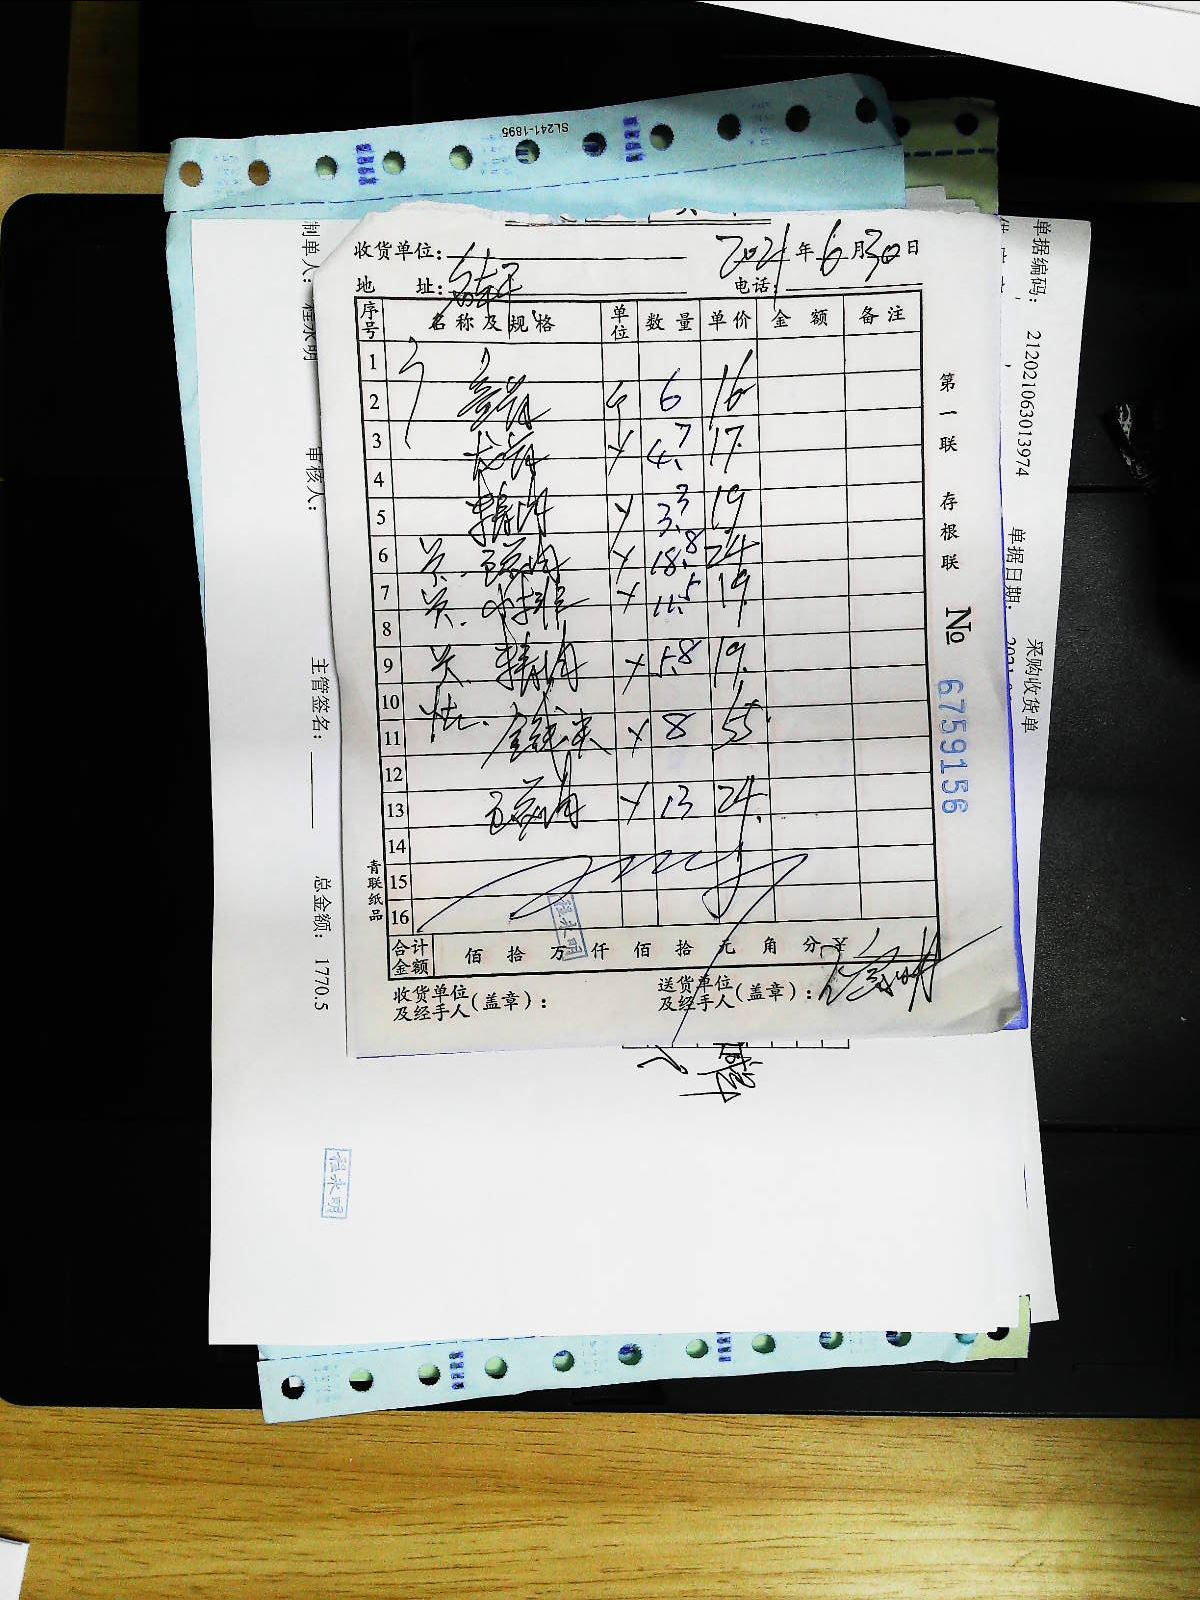 SL241-1895
收货单位：
2021年6月30日
地 址：
电话：
序号 名称及规格 单位 数量 单价 金额 备注
1
2 6 16
3 龙骨 4.7 17
4
5 精肉 3.3 19
6 关. 五花肉 18.8 24
7 关. 小排 11.5 19
8
9 关. 精肉 5.8 19
10
11 金钱 8 55
12
13 五花肉 13 24
14
15
16
合计金额 佰 拾 万 仟 佰 拾 元 角 分 ¥
收货单位及经手人（盖章）：
送货单位及经手人（盖章）：
青联纸品
第一联 存根联
№ 6759156
程永明
单据编码： 21202106301397​4
单据日期：
采购收货单
制单人： 程永明
审核人：
主管签名：
总金额： 1770.5
程永明